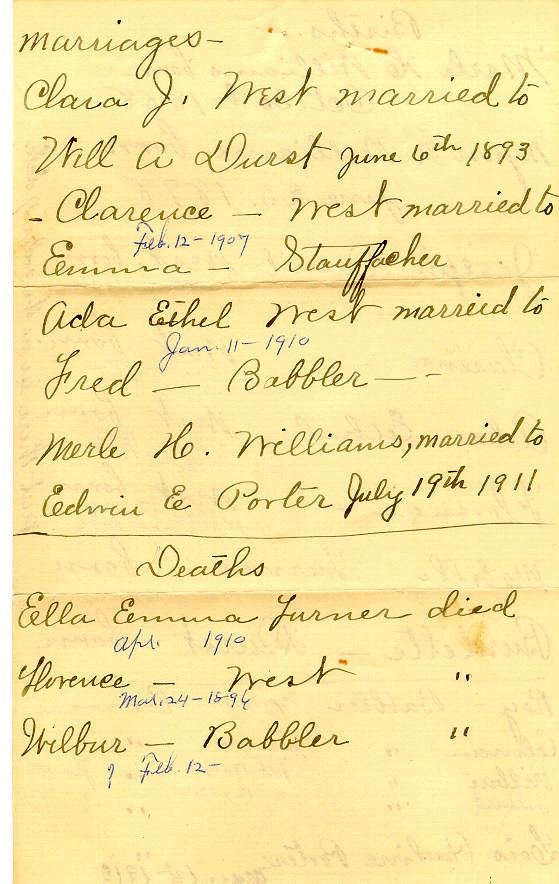 Marriages -
Clara J. West married to
Will A Durst June 6th 1893
- Clarence - West married to
Feb. 12 - 1907
Emma - Stauffacher
Ada Ethel West married to
Jan. 11 - 1910
Fred - Babbler - -
Merle H. Williams, married to
Edwin E Porter July 19th 1911
Deaths
Ella Emma Turner died
Apr. 1910
Florence - West "
Mar. 24 - 1896
Wilbur - Babbler "
? Feb. 12 -